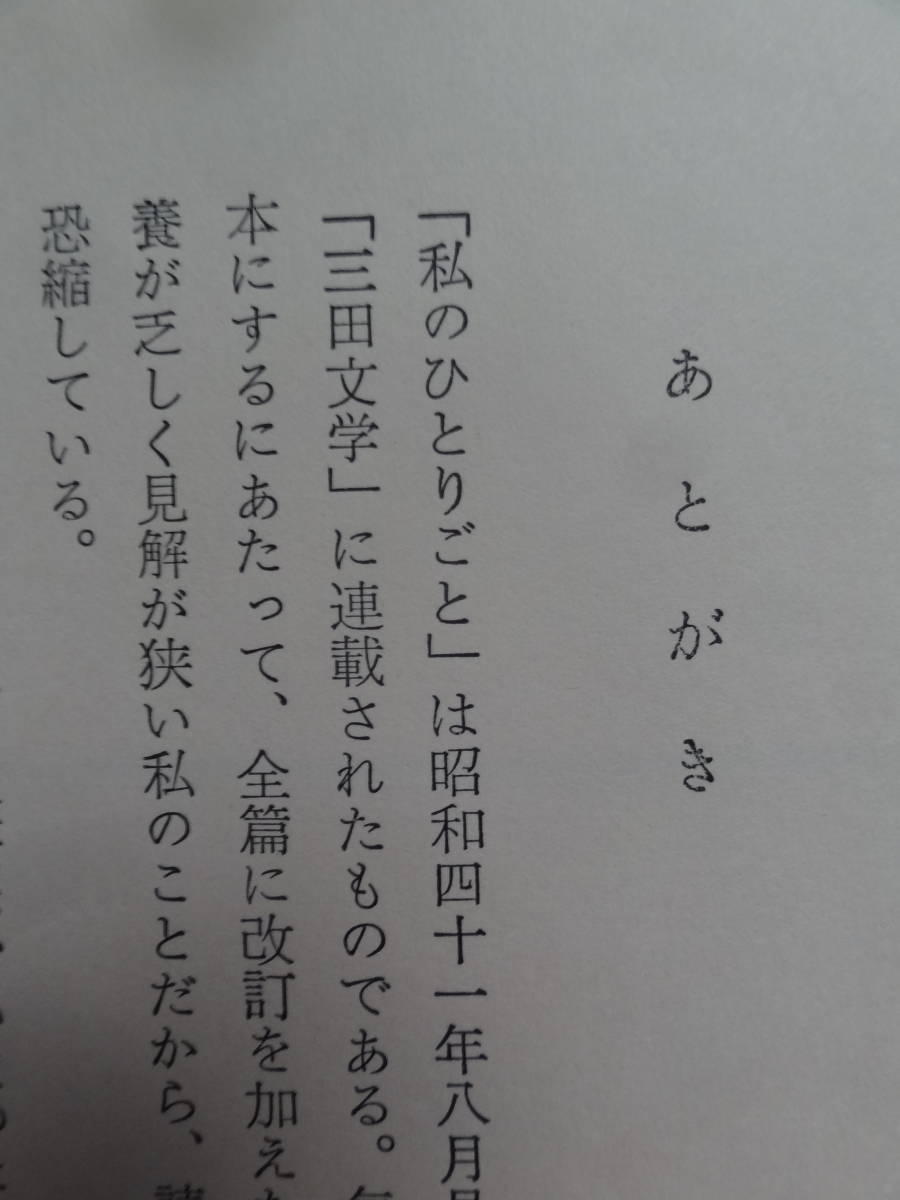 あとがき
「私のひとりごと」は昭和四十一年八月
「三田文学」に連載されたものである。
本にするにあたって、全篇に改訂を加え
養が乏しく見解が狭い私のことだから、
恐縮している。